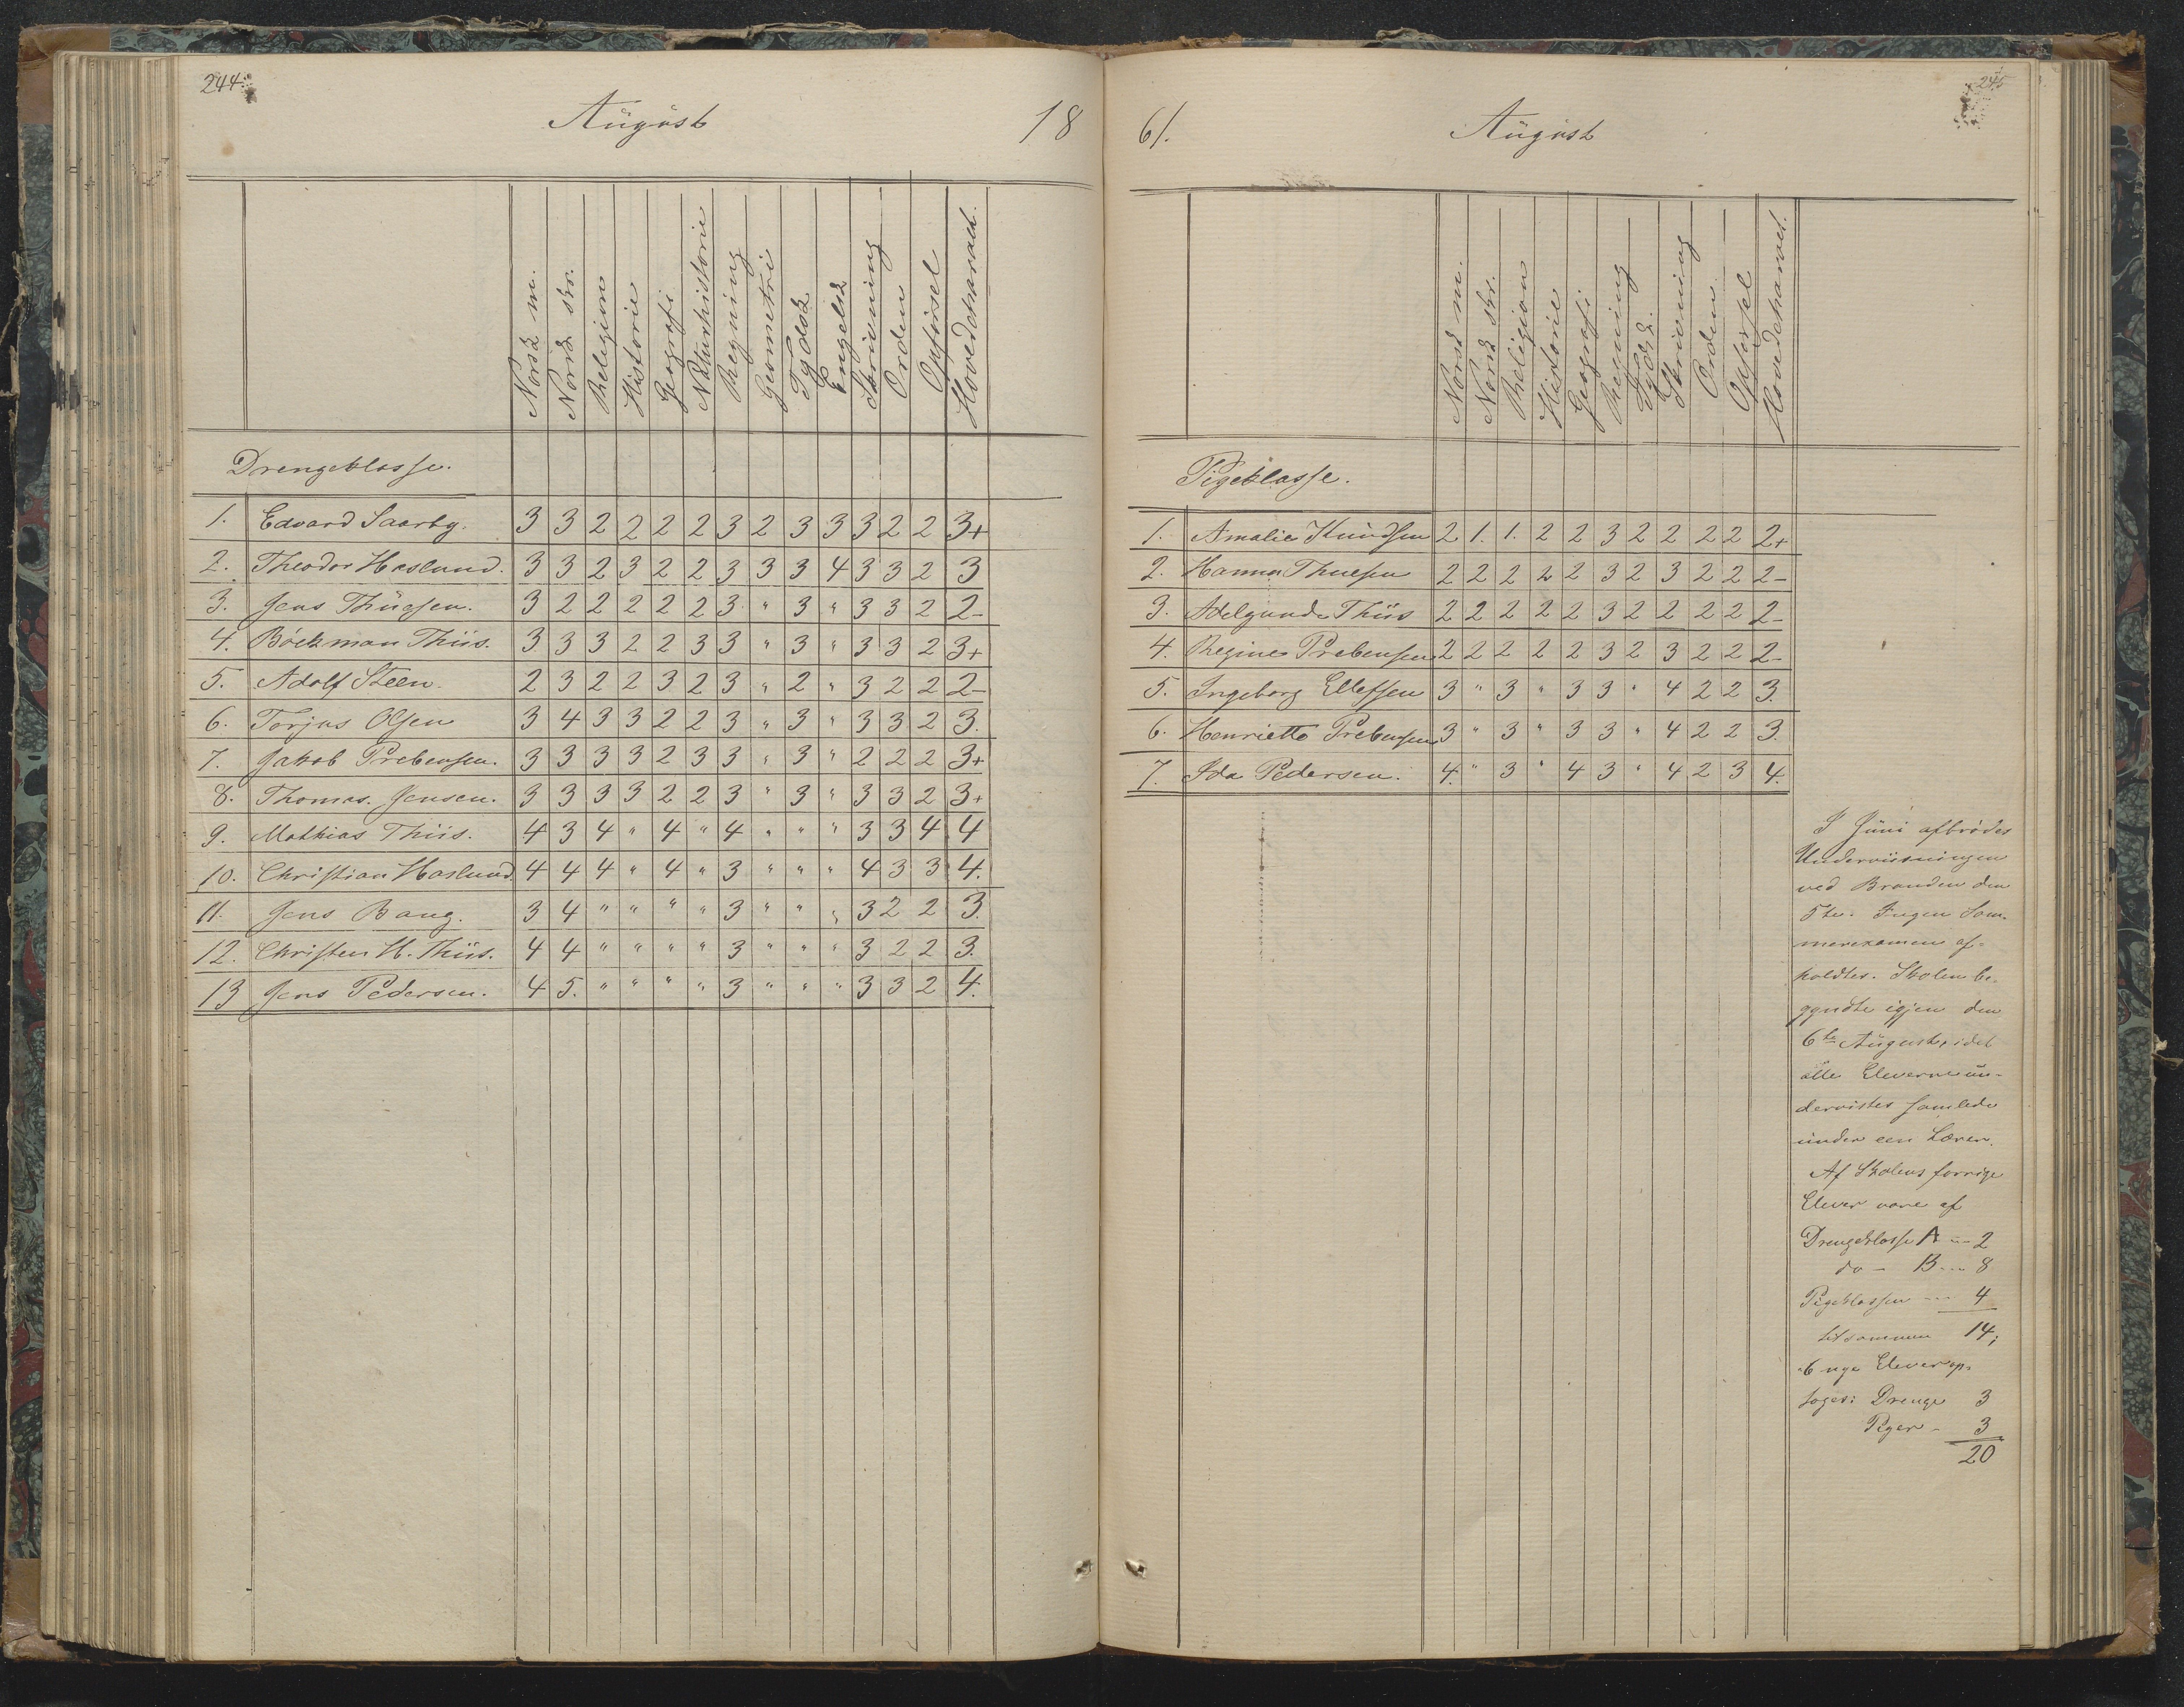 244.
August 18
Norsk m. Norsk skr. Religion Historie Geografi Naturhistorie Regning Geometri Tydsk Engelsk Skrivning Orden Opførsel Hovedcharact.
Drengeklasse.
1. Edvard Saarby. 3 3 2 2 2 2 3 2 3 3 3 2 2 3+
2. Theodor Haslund. 3 3 2 3 2 2 3 3 3 4 3 3 2 3
3. Jens Thuesen. 3 2 2 2 2 2 3 " 3 " 3 3 2 2-
4. Böckman Thiis. 3 3 3 2 2 3 3 " 3 " 3 3 2 3+
5. Adolf Steen. 2 3 2 2 3 2 3 " 2 " 3 2 2 2-
6. Torjus Olsen 3 4 3 3 2 2 3 " 3 " 3 3 2 3.
7. Jakob Prebensen. 3 3 3 3 2 3 3 " 3 " 2 2 2 3+
8. Thomas. Jensen. 3 3 3 3 2 2 3 " 3 " 3 3 2 3+
9. Mathias Thiis. 4 3 4 " 4 " 4 " " " 3 3 4 4
10. Christian Haslund. 4 4 4 " 4 " 3 " " " 4 3 3 4.
11. Jens Bang. 3 4 " " " " 3 " " " 3 2 2 3.
12. Christen H. Thiis. 4 4 " " " " 3 " " " 3 2 2 3.
13 Jens Pedersen. 4 5. " " " " 3 " " " 3 3 2 4.
245
61. August
Norsk m. Norsk skr. Religion Historie Geografi Regning Tydsk. Skrivning Orden Opførsel Hovedcharact.
Pigeklasse.
1. Amalie Knudsen 2 1. 1. 2 2 3 2 2 2 2 2+
2. Hanna Thuesen 2 2 2 2 2 3 2 3 2 2 2-
3. Adelgunde Thiis 2 2 2 2 2 3 2 2 2 2 2-
4. Regine Prebensen 2 2 2 2 2 3 2 3 2 2 2-
5. Ingeborg Ellefsen 3 " 3 " 3 3 " 4 2 2 3.
6. Henriette Prebensen 3 " 3 " 3 3 " 4 2 2 3.
7. Ida Pedersen. 4. " 3 " 4 3 " 4 2 3 4.
I Juni afbrødes
Underviisningen
ved Branden den
5te. Ingen Som-
merexamen af-
holdtes. Skolen be-
gyndte igjen den
6te August, idet
alle Eleverne un-
dervistes samlede
under een Lærer.
Af Skolens forrige
Elever vare af
Drengeklasse A -- 2
do - B --- 8
Pigeklassen --- 4
tilsammen 14;
6 nye Elever op-
toges: Drenge 3
Piger - 3
20